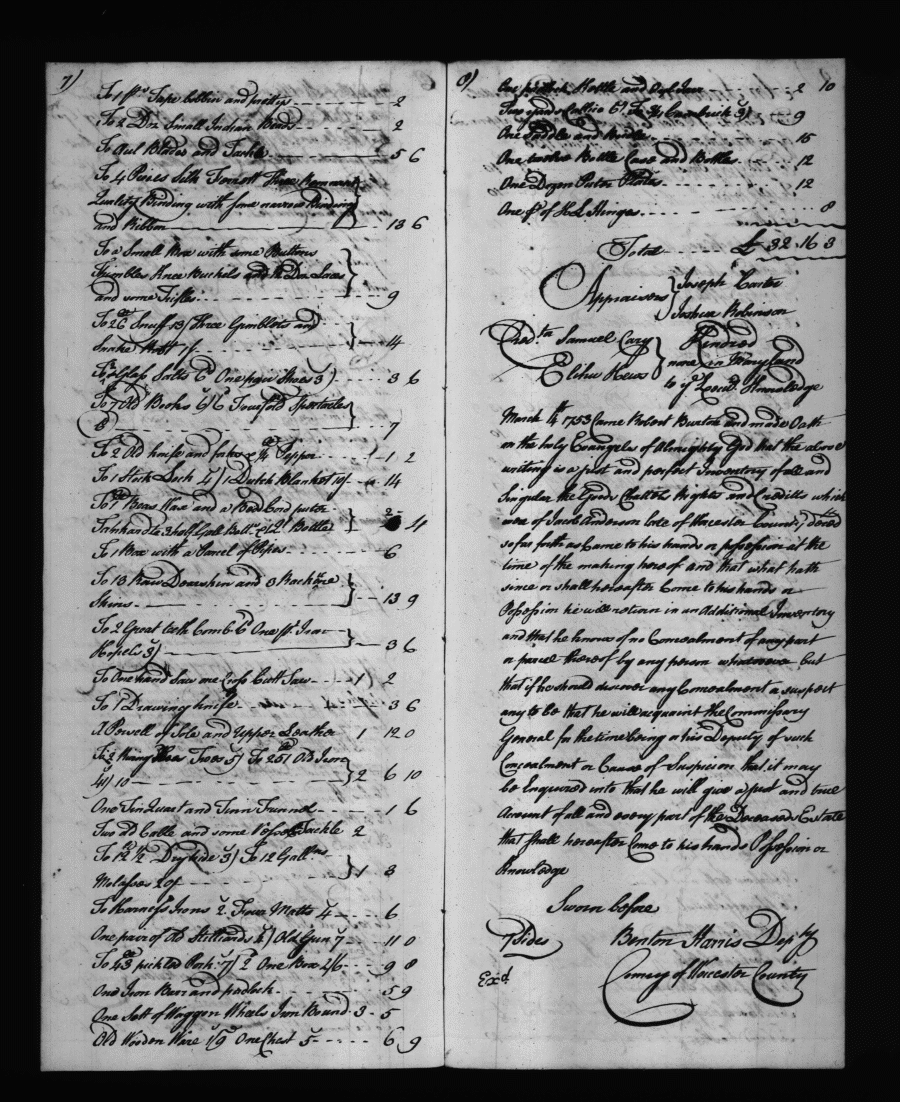 7)
To 1 ps Tape bobbin and pritty 2
To 2 Doz Small Indian Beads 2
To Qul Blades and Tackle 5 6
To 4 Peices Silk Three Remnant
Quality Binding with some narrow Binding
and Ribbon 13 6
To a Small Box with some Buttons
Thimbles Knee Buckels and Doz Laces
and some Trifles 9
To 2 Snuff 13/ Three Gimblets and
Snake Root 4
Salts 6d One pair Shoes 3/ 3 6
To 7 Old Books 6/6 Spectacles
7
To 2 Old knife and forks Pepper 1 2
To 1 Stock Lock 4/ 1 Dutch Blanket 10/ 14
To Bees Wax and a Bed Cord
3 half Gall Bottles 4
To 1 Box with a Parcel of Pipes 6
To 13 Raw Deerskin and 3 Rackoone
Skins 13 9
To 2 Great tooth Comb 6d One pr Iron
3/ 3 6
To One hand Saw one Cross Cutt Saw 1 2
To 1 Drawing knife 3 6
A of Sole and Upper Leather 1 12 0
5/ To 251 Old Iron
4/ 10 2 6 10
One Tin Quart and Tinn Funnel 1 6
Two old Cable and some Vessel Tackle 2
To 12 1/2 Dry hide 3/ To 12 Galls
Molasses 20/ 1 3
To Harness Irons 2 Four Matts 4 6
One pair of Old Stilliards 4/ Old Gun 7 11 0
To 43 pickled Pork 7/2 One Box 2/6 9 8
One Iron Barr and padlock 5 9
One Sett of Waggon Wheels Iron Bound 3 5
Old Wooden Ware 1/9 One Chest 5 6 9
8)
One Kettle and 2 10
Two yards Callico 6/ Cambrick 3/ 9
One Saddle and Bridle 15
One twelve Bottle Case and Bottles 12
One Dozen Puter Plates 12
One pr of HL Hinges 8
Total £ 32 16 3
Appraisors Joseph Carter
Joshua Robinson
Credtrs Samuel Cary Kindred
Elihu none in Maryland
to ye Knowledge
March 4th 1753 Came Robert Burton and made Oath
on the holy Evangels of Almighty God that the above
writing is a just and perfect Inventory of all and
singular the Goods Chattels Rights and Creditts which
were of Jacob Anderson late of Worcester County, deced
so far forth as Came to his hands or possession at the
time of the making hereof and that what hath
since or shall hereafter Come to his hands or
Possession he will return in an Additional Inventory
and that he knows of no Concealment of any part
or parcel thereof by any person whatsoever but
that if he should discover any Concealment or suspect
any to be that he will acquaint the Commissary
General for the time being or his Deputy of such
Concealment or Cause of Suspicion that it may
be Enquired into that he will give a just and true
Account of all and every part of the Deceased Estate
that shall hereafter Come to his hands Possession or
Knowledge
Sworn before
7 Sides Benton Harris Depty
Exd Comry of Worcester County